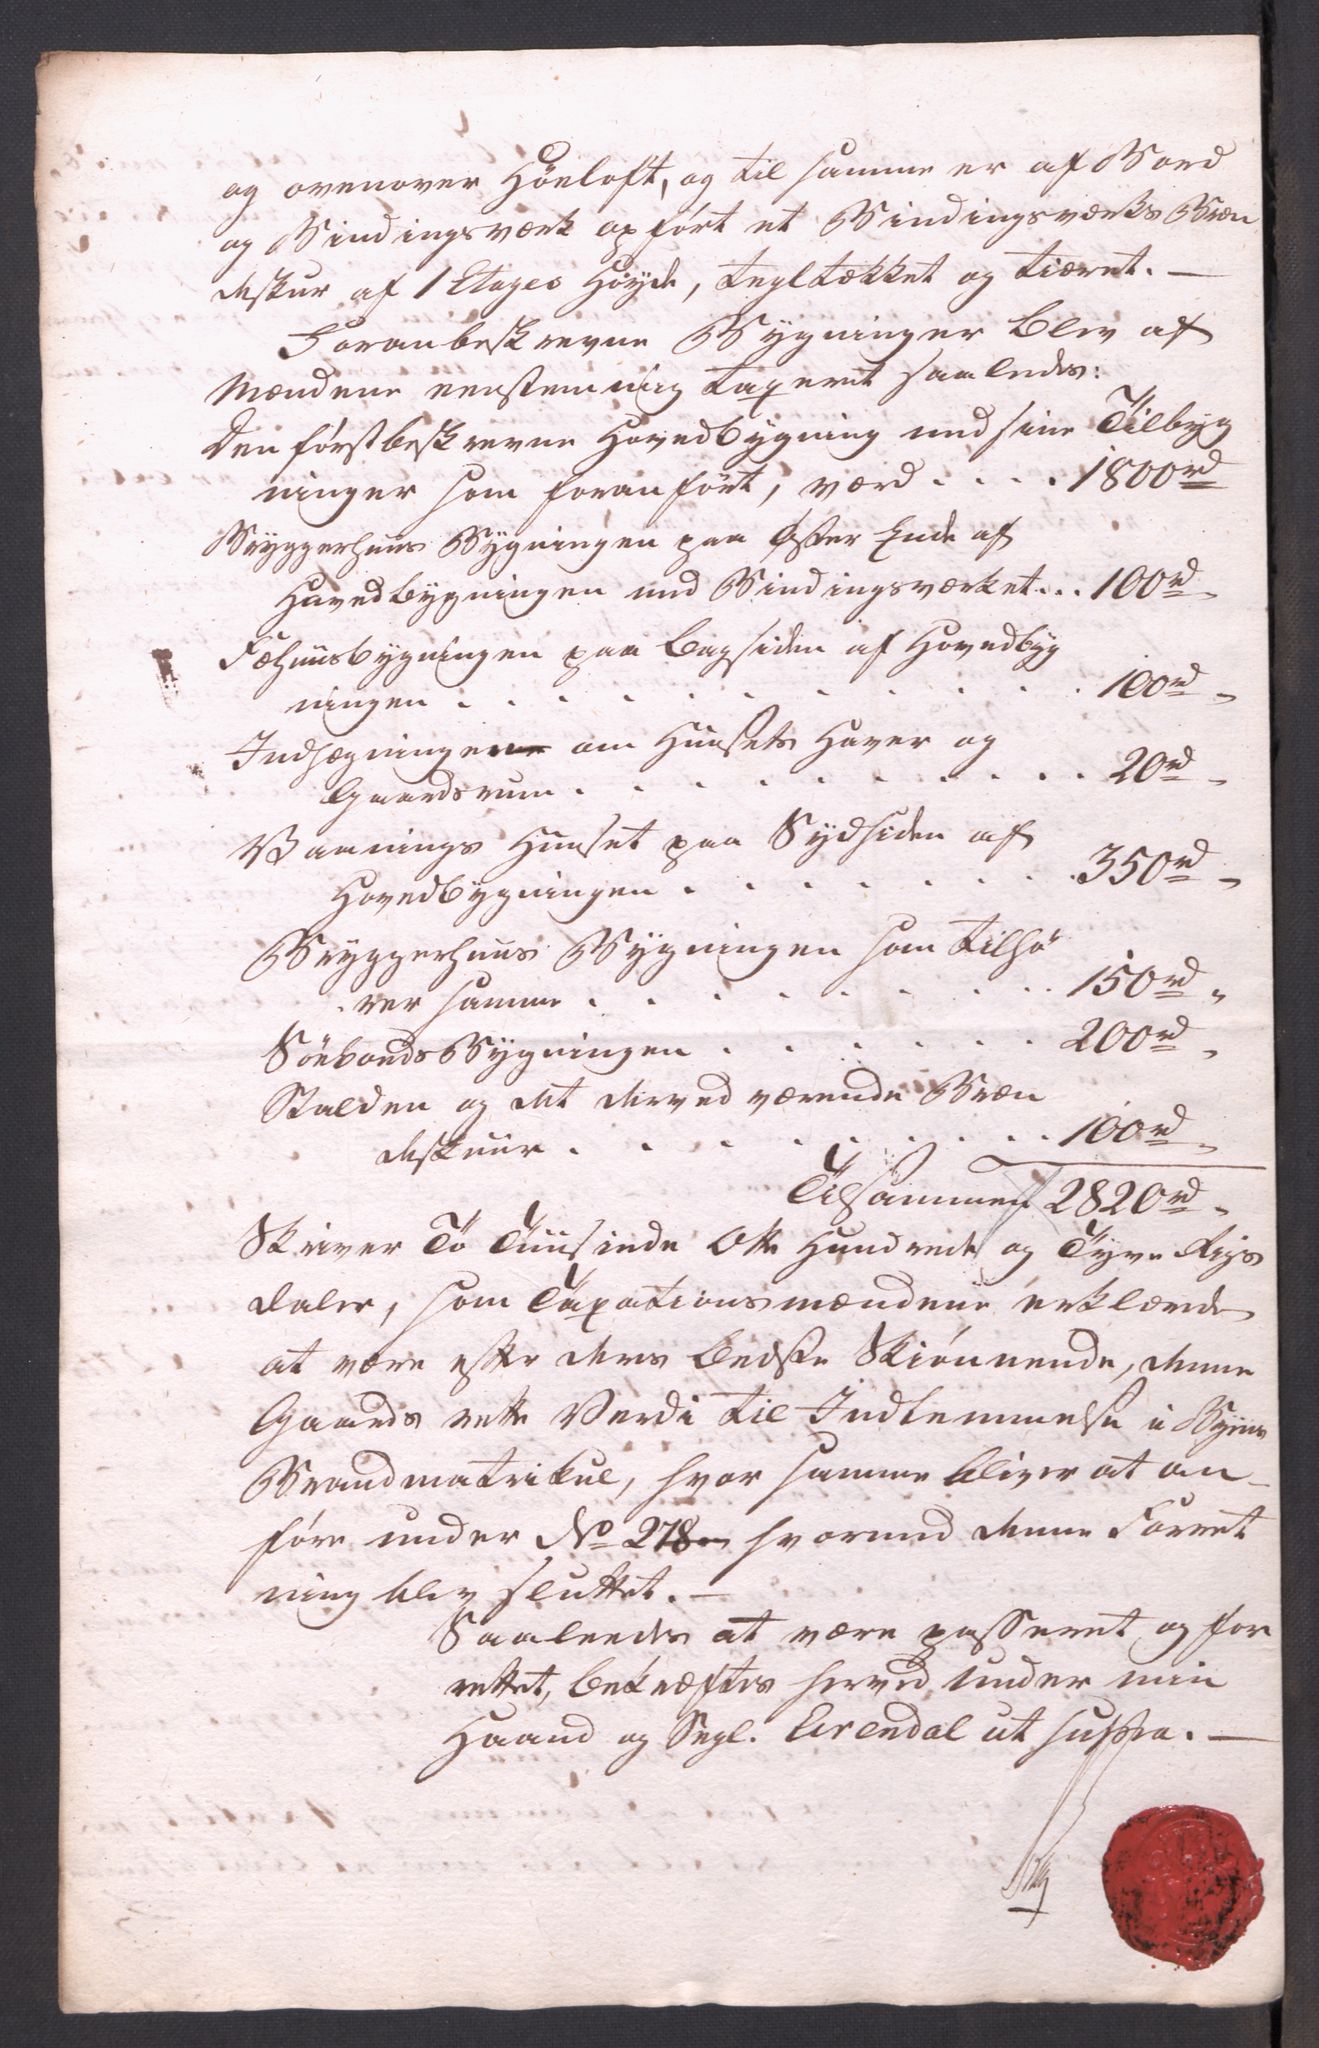 og ovenover Höeloft, og til samme er af Bord
og Bindingsværk opført et Bindingsværks Bræn
deskur af 1 Etages Höyde, tegltækket og tiæret. —
Foranbeskrevne Bygninger blev af
Mændene eenstemmig taxeret saaledes:
Den förstbeskrevne Hovedbygning med sine Tilbyg
ninger som foranfört, værd . . . . 1800rd
Bryggerhuus Bygningen paa Øster Ende af
Hovedbygningen med Bindingsværket . . . 100rd „
Fæhuusbygningen paa Bagsiden af Hovedbyg
ningen . . . . . . . . . . . 100rd „
Indhægningen om Huusets Haver og
Gaardsrum . . . . . . . . . . 20rd „
Vaanings Huuset paa Sydsiden af
Hovedbygningen . . . . . . . . 350rd „
Bryggerhuus Bygningen som tilhö
rer samme . . . . . . . . . 150rd „
Söebords Bygningen . . . . . . 200rd „
Stalden og det derved værende Bræn
deskuur . . . . . . . . . 100rd „
Tilsammen 2820rd „
Skriver To Tuusinde Otte Hundrede og Tyve Rigs
daler, som Taxationsmændene erklærede
at være efter deres bedste Skiönnende, denne
Gaards rette Verdi til Indlemmelse i Byens
Brandmatrikul, hvor samme bliver at an-
före under No 278 hvormed denne Forret
ning blev sluttet. —
Saaledes at være passeret og for
rettet, bekræftes herved under min
Haand og Segl. Arendal ut supra. —